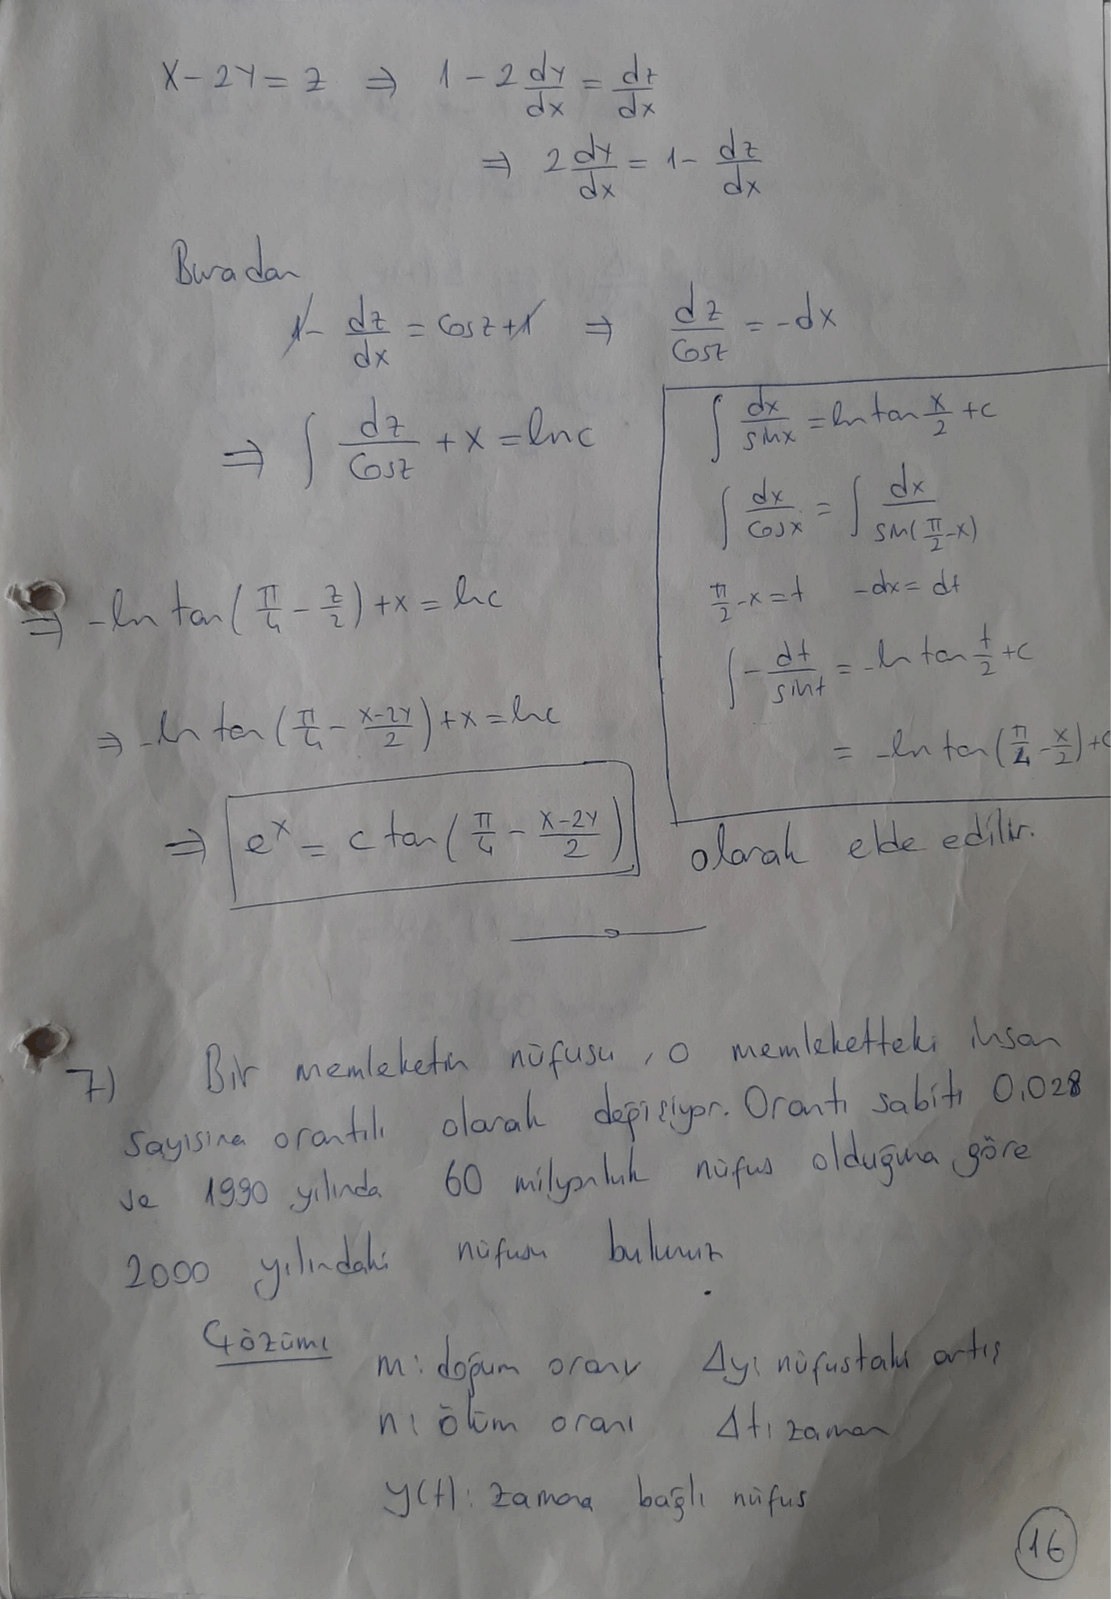 x - 2y = z ⇒ 1 - 2 dy/dx = dz/dx
⇒ 2 dy/dx = 1 - dz/dx
Buradan
1 - dz/dx = cosz + 1 ⇒ dz/cosz = -dx
⇒ ∫ dz/cosz + x = lnc
⇒ -ln tan(π/4 - z/2) + x = lnc
⇒ -ln tan(π/4 - (x-2y)/2) + x = lnc
⇒ e^x = c tan(π/4 - (x-2y)/2)
∫ dx/sinx = ln tan x/2 + c
∫ dx/cosx = ∫ dx/sin(π/2 - x)
π/2 - x = t -dx = dt
∫ - dt/sint = -ln tan t/2 + c
= -ln tan(π/4 - x/2) + c
olarak elde edilir.
7) Bir memleketin nüfusu, o memleketteki insan
sayısına orantılı olarak değişiyor. Orantı sabiti 0,028
ve 1990 yılında 60 milyonluk nüfus olduğuna göre
2000 yılındaki nüfusu bulunuz
Çözüm:
m: doğum oranı Δy: nüfustaki artış
n: ölüm oranı Δt: zaman
y(t): zamana bağlı nüfus
16